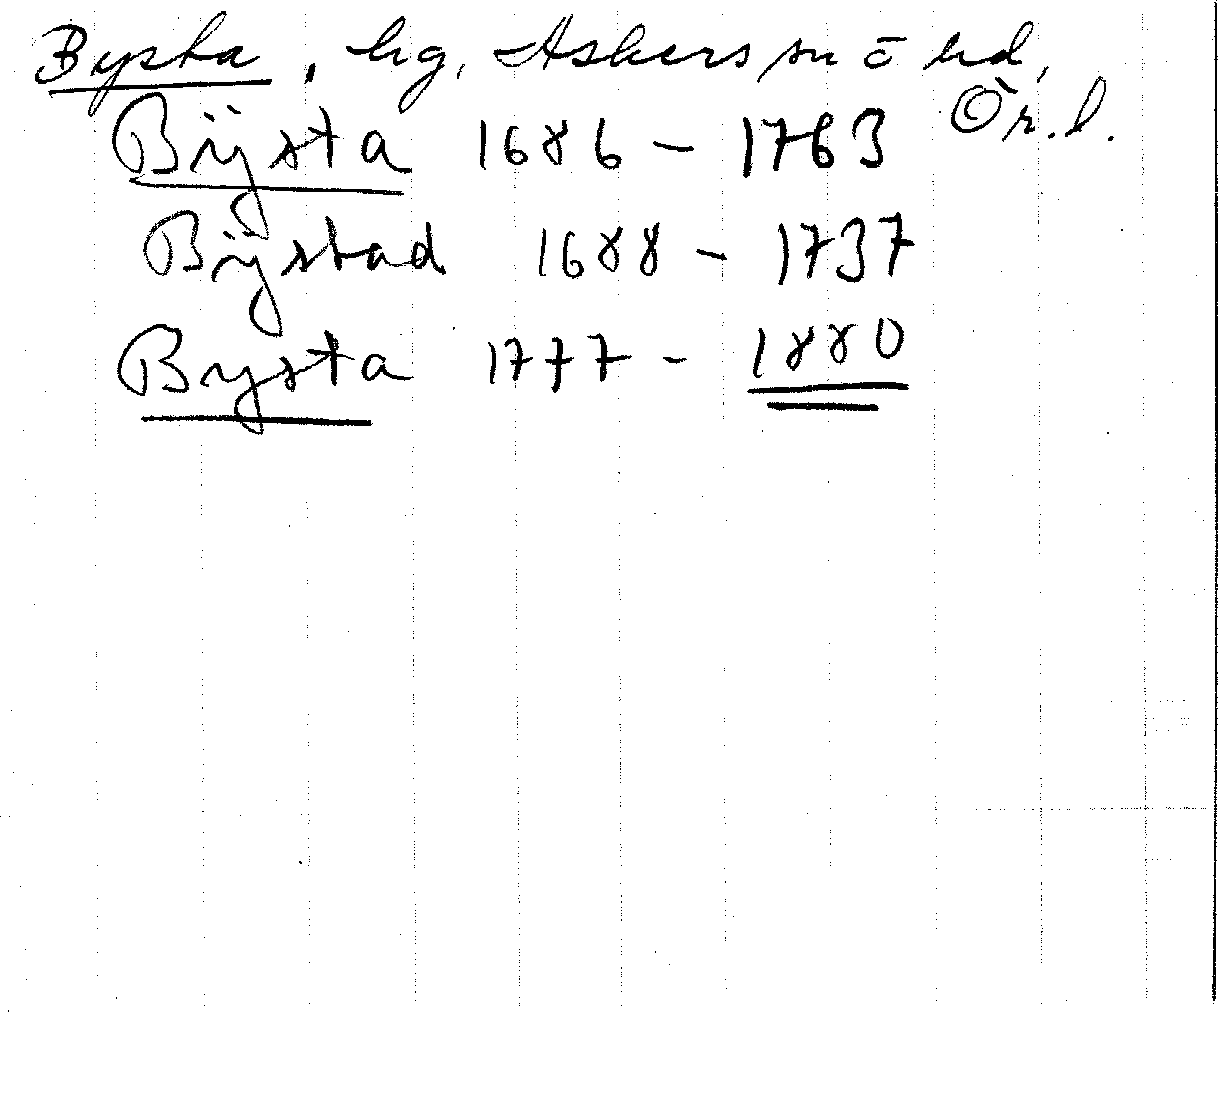 Bysta, hg, Askersunds hd,
Ör.l.
Bÿsta 1686 – 1763
Bÿstad 1688 – 1737
Bysta 1777 – 1880